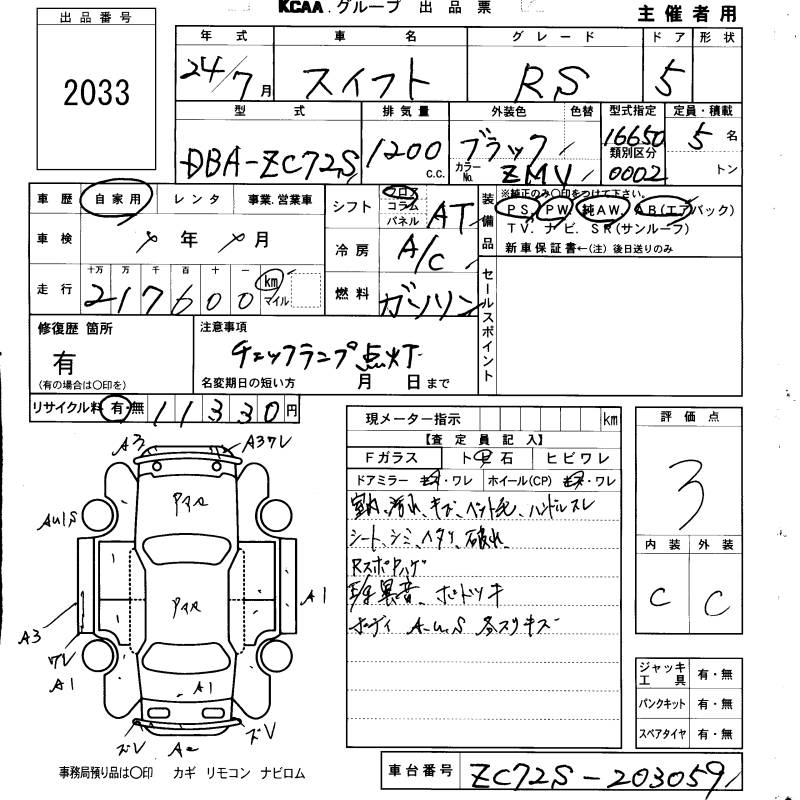 KCAA.グループ 出品票
主催者用
出品番号
2033
年式 車名 グレード ドア 形状
24/7月 スイフト RS 5
型式 排気量 外装色 色替 型式指定 定員・積載
DBA-ZC72S 1200 c.c. ブラック 16650 5名
カラーNo. ZMV 類別区分 0002 トン
車歴 自家用 レンタ 事業.営業車
シフト フロア コラム パネル AT
装備品 ※純正のみ〇印をつけて下さい。
PS. PW. 純AW. AB(エアバック)
TV. ナビ. SR(サンルーフ)
新車保証書←(注) 後日送りのみ
車検 年 月
冷房 A/C
走行 十万 万 千 百 十 一
217600 km マイル
燃料 ガソリン
セールスポイント
修復歴 箇所
有
(有の場合は〇印を)
注意事項
チェックランプ点灯
名変期日の短い方 月 日まで
リサイクル料 有・無 11330円
現メーター指示 km
【査定員記入】
Fガラス ト 石 ヒビワレ
ドアミラー キズ・ワレ ホイール(CP) キズ・ワレ
室内、汚れ、キズ、ペット毛、ハンドルスレ
シート、シミ、ヘタリ、破れ、
RスポPハゲ
異音、
ボディ A.U.S 各スリキズ
評価点
3
内装 外装
C C
ジャッキ工具 有・無
パンクキット 有・無
スペアタイヤ 有・無
A3 A3ワレ
AU1S
A1
A3
ワレ
A1
A1
ズレ A2 ズレ
事務局預り品は〇印 カギ リモコン ナビロム
車台番号 ZC72S-203059